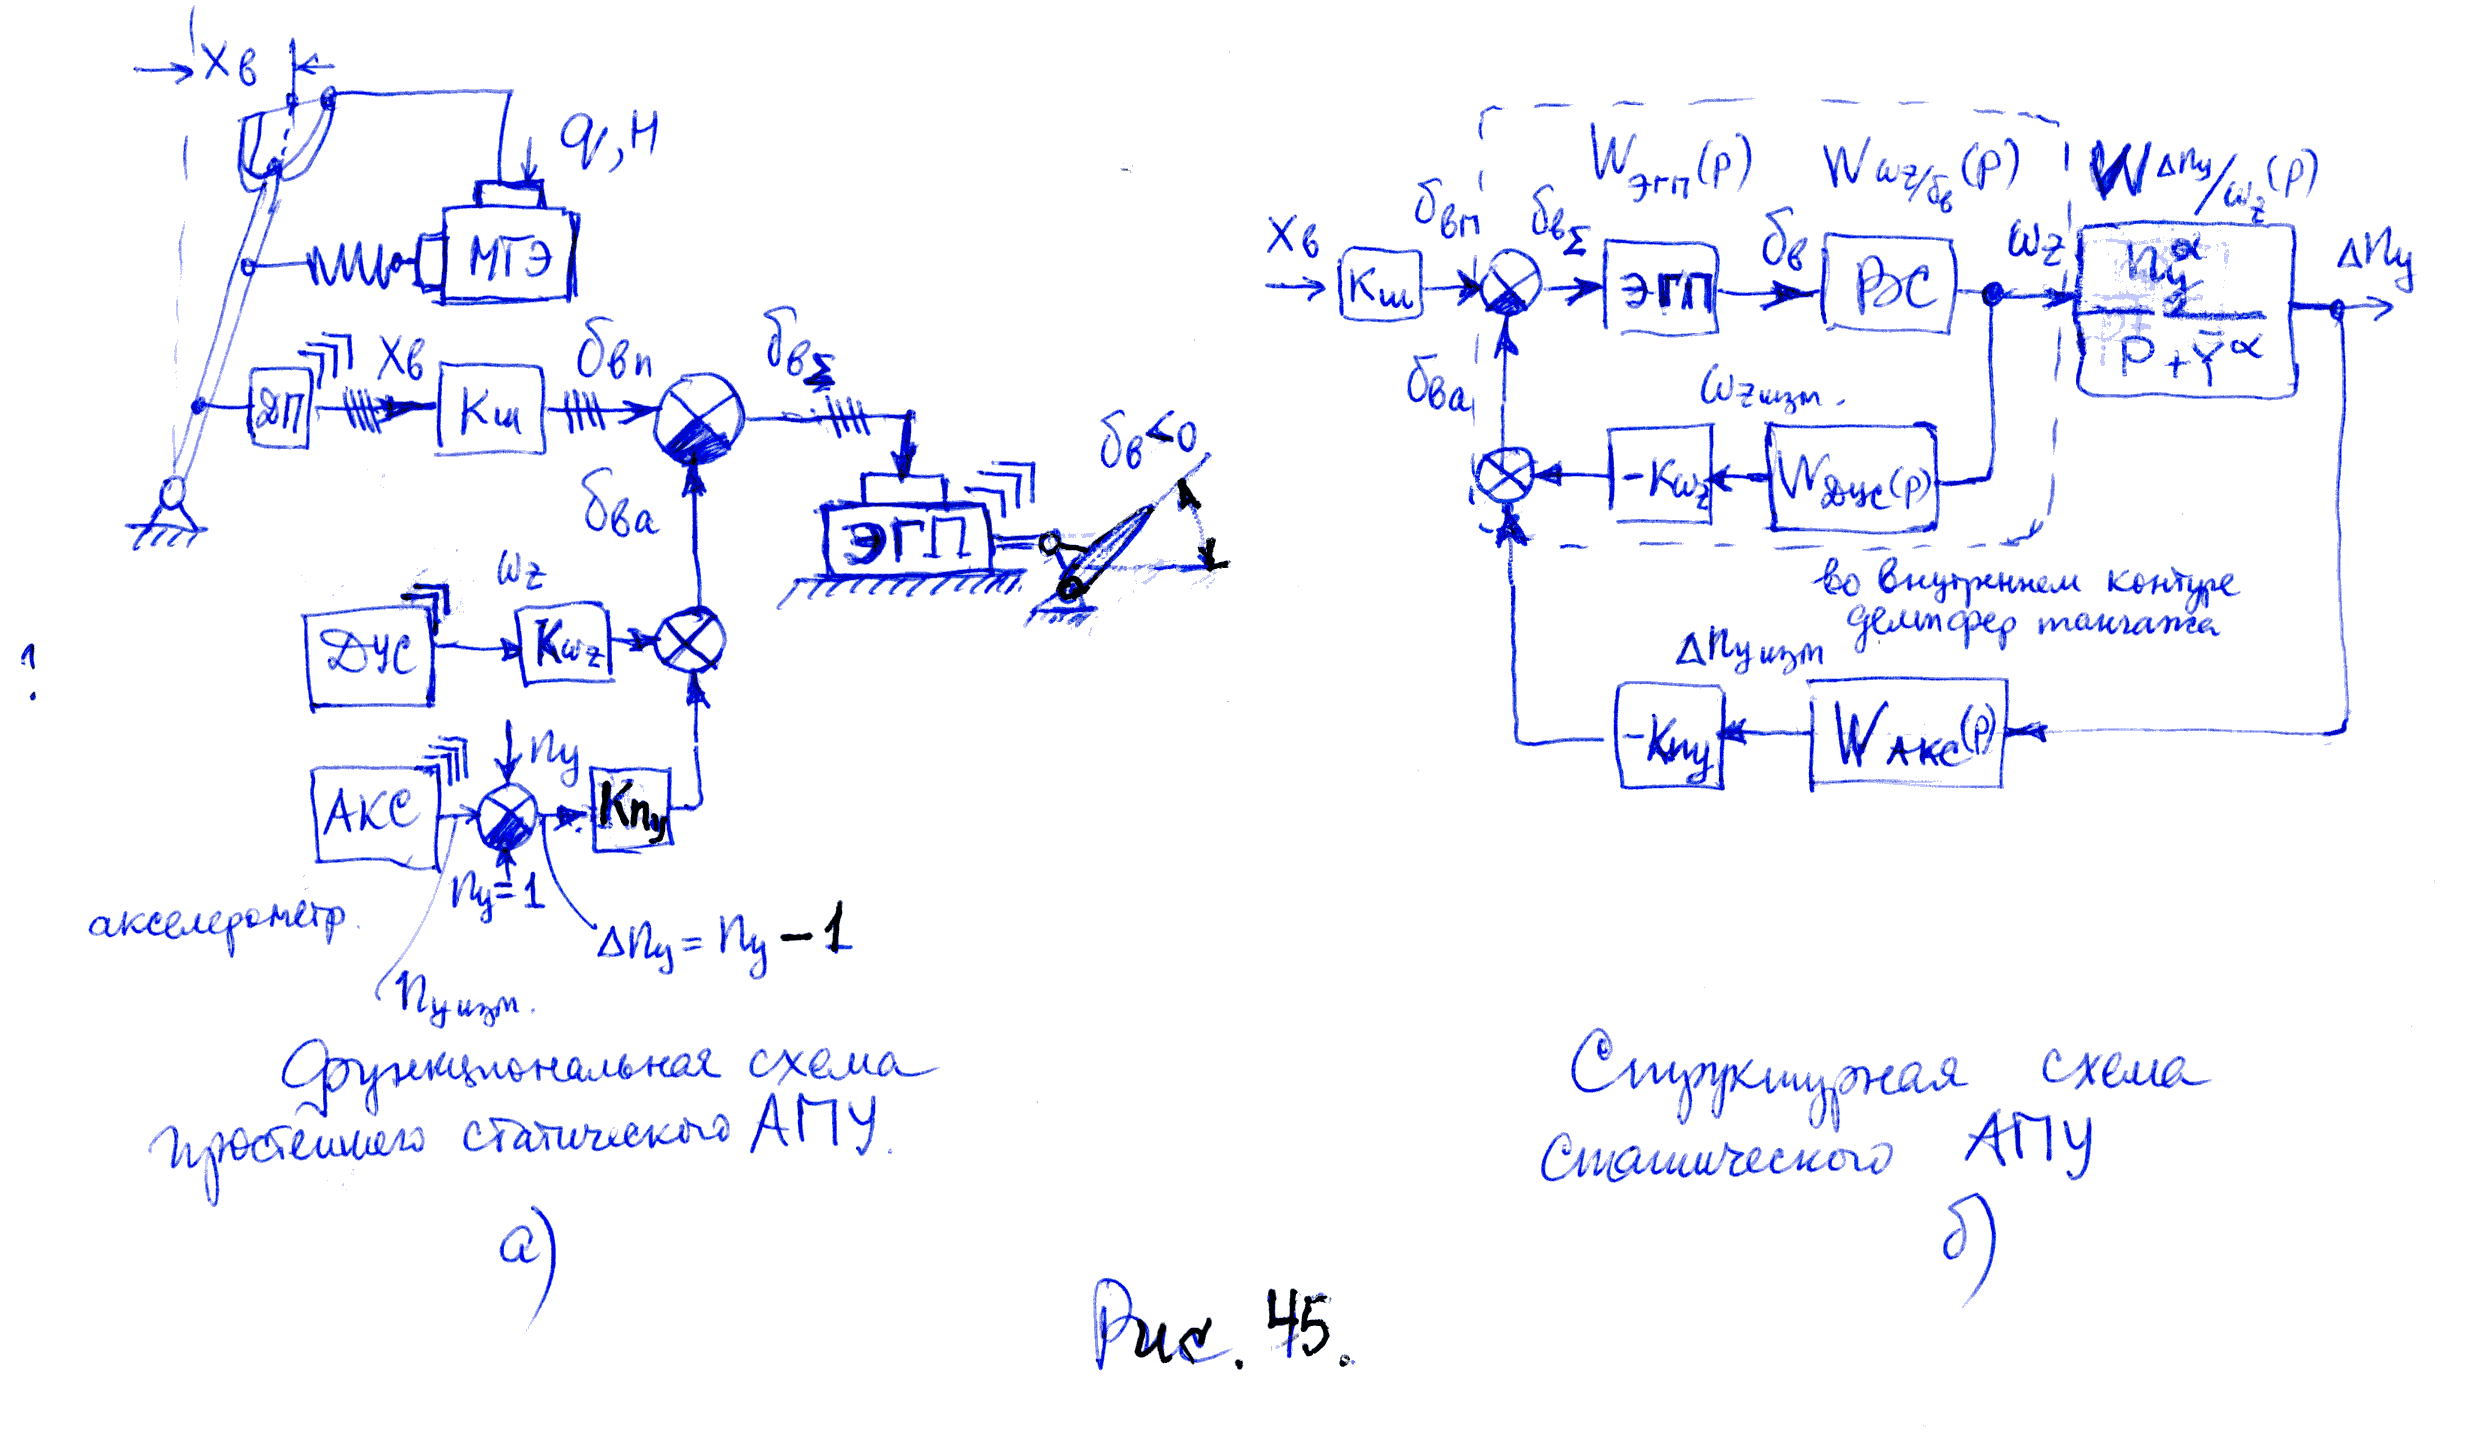 Xв
q, H
МГЭ
ДП
Xв
Kш
δвп
δвΣ
δва
ЭГП
δв<0
ДУС
ωz
Kωz
АКС
ny
ny=1
Kny
акселерометр.
Δny = ny - 1
ny изм.
Функциональная схема
простейшего статического АПУ.
а)
Wэгп(p)
Wωz/δв(p)
WΔny/ωz(p)
Xв
Kш
δвп
δвΣ
ЭГП
δв
РЭС
ωz
Δny
p + Y̅α
δва
ωz изм.
-Kωz
Wдус(p)
во внутреннем контуре
демпфер тангажа
Δny изм
-Kny
WАКС(p)
Структурная схема
статического АПУ
б)
Рис. 45.